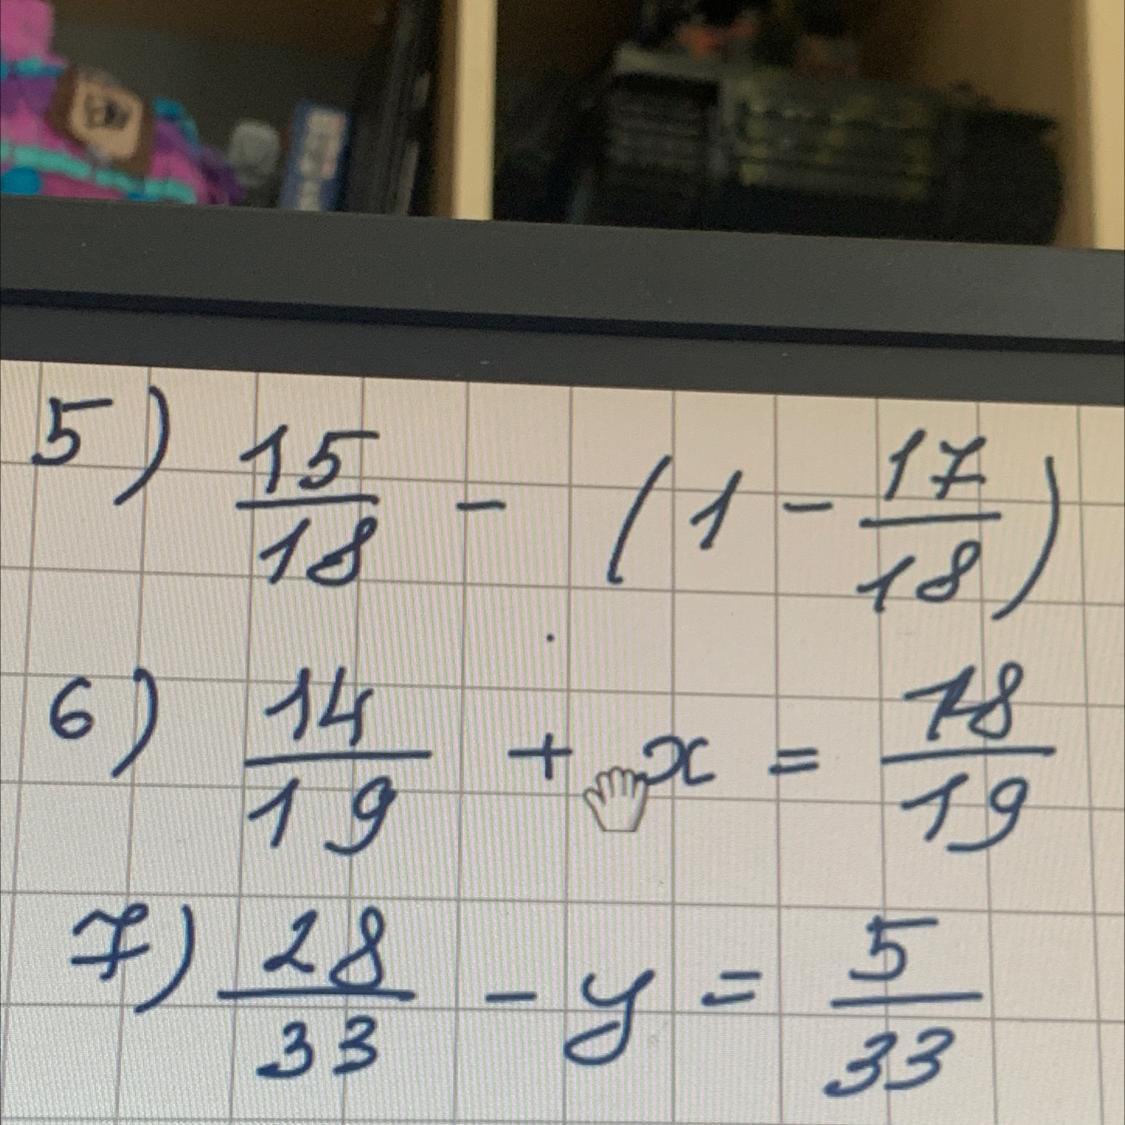 5) 15/18 - (1 - 17/18)
6) 14/19 + x = 18/19
7) 28/33 - y = 5/33